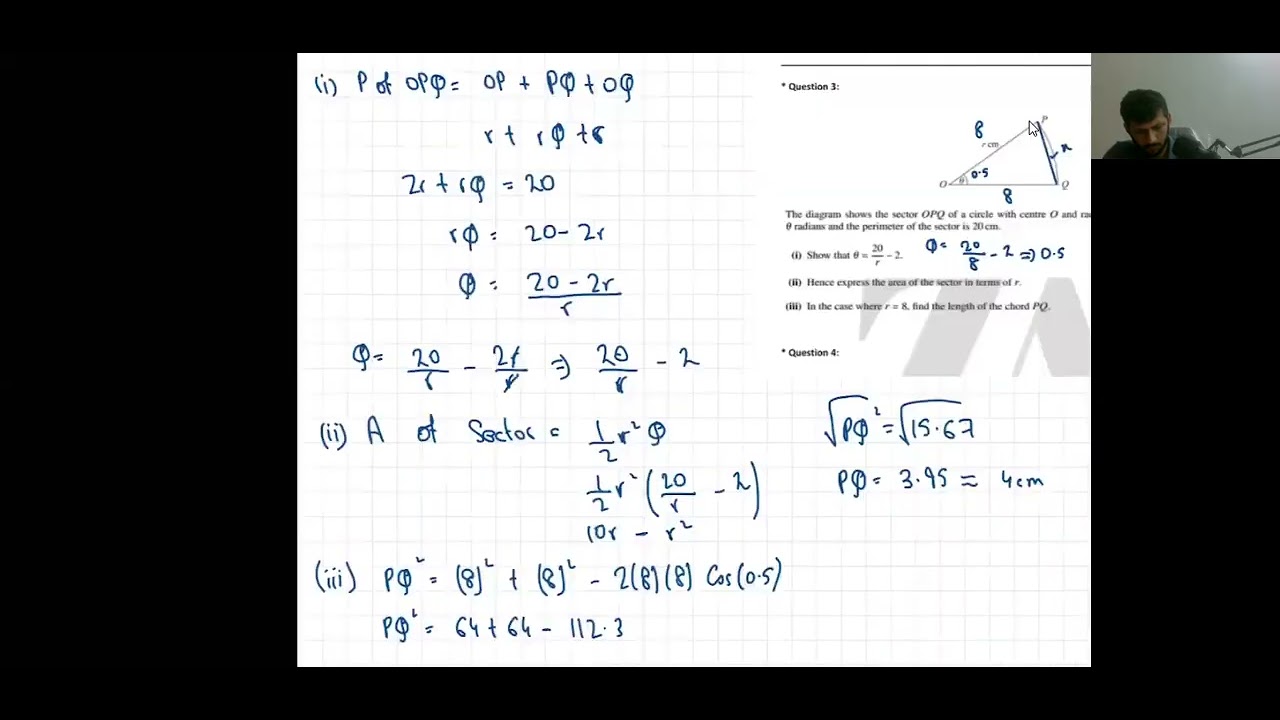 (i) P of OPQ = OP + PQ + OQ
r + rθ + r
2r + rθ = 20
rθ = 20 - 2r
θ = 20 - 2r / r
θ = 20/r - 2r/r ⇒ 20/r - 2
(ii) A of Sector = 1/2 r² θ
1/2 r² (20/r - 2)
10r - r²
(iii) PQ² = (8)² + (8)² - 2(8)(8) Cos(0.5)
PQ² = 64 + 64 - 112.3
* Question 3:
P
8
r cm
x
O θ 0.5
Q
8
The diagram shows the sector OPQ of a circle with centre O and ra
θ radians and the perimeter of the sector is 20 cm.
(i) Show that θ = 20/r - 2. θ = 20/8 - 2 ⇒ 0.5
(ii) Hence express the area of the sector in terms of r.
(iii) In the case where r = 8, find the length of the chord PQ.
* Question 4:
√PQ² = √15.67
PQ = 3.95 ≈ 4cm